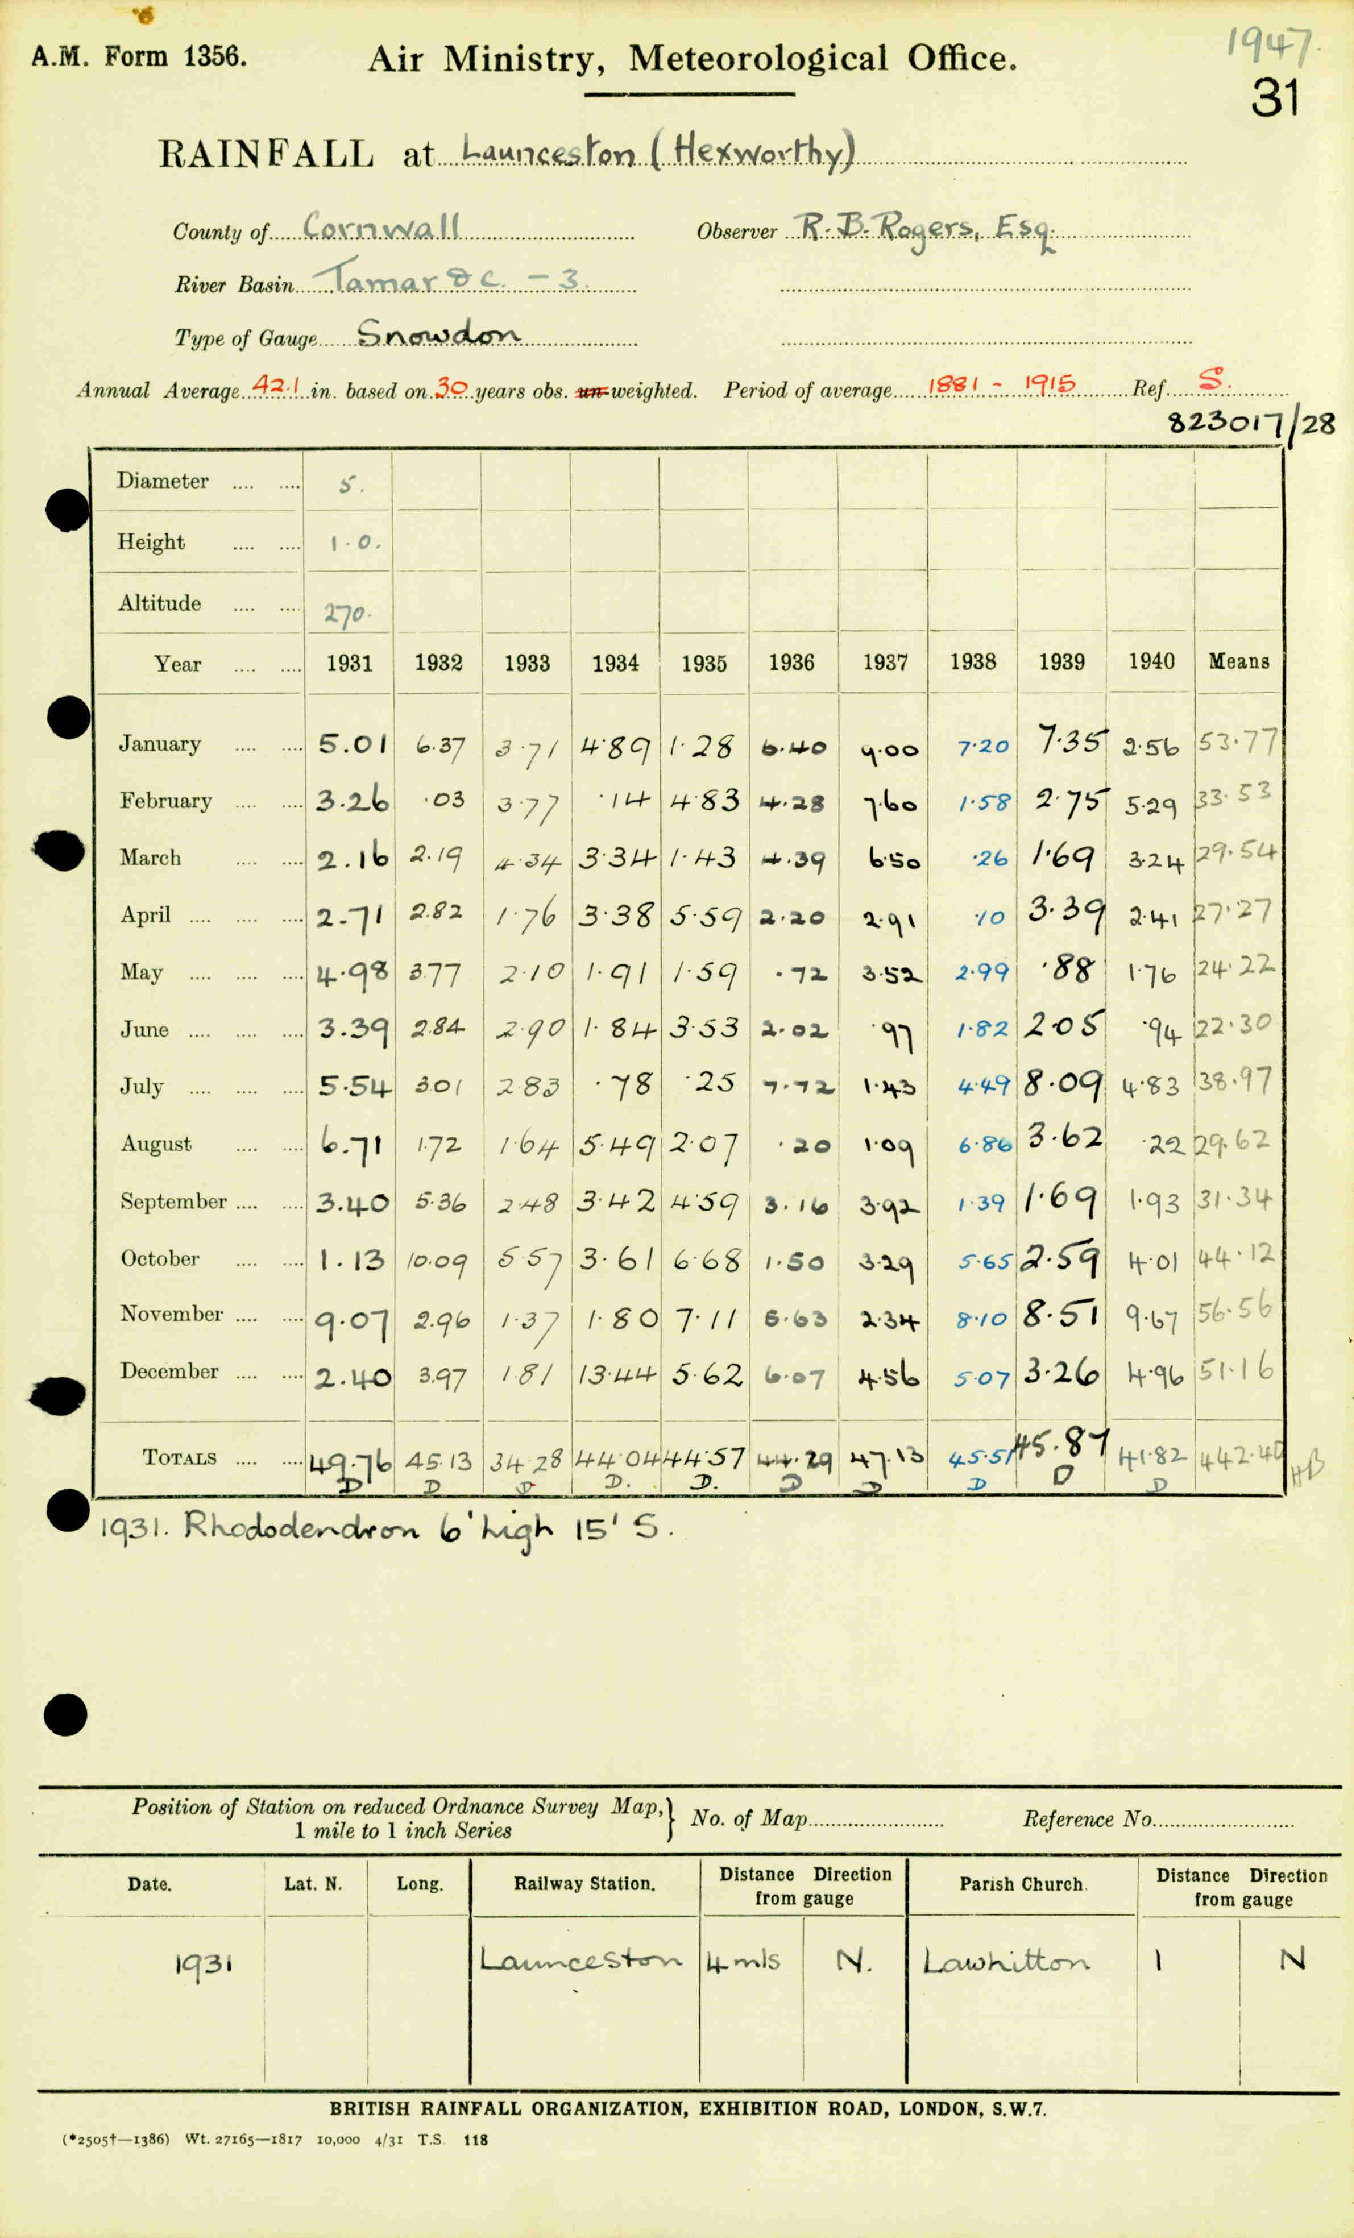 1947.
A.M. Form 1356. Air Ministry, Meteorological Office.
31
RAINFALL at Launceston (Hexworthy)
County of Cornwall Observer R. B. Rogers, Esq.
River Basin Tamar &c. - 3.
Type of Gauge Snowdon
Annual Average 42.1 in. based on 30 years obs. un-weighted. Period of average 1881 - 1915 Ref. S.
823017/28
Diameter 5.
Height 1.0.
Altitude 270.
Year 1931 1932 1933 1934 1935 1936 1937 1938 1939 1940 Means
January 5.01 6.37 3.71 4.89 1.28 6.40 9.00 7.20 7.35 2.56 53.77
February 3.26 .03 3.77 .14 4.83 4.28 7.60 1.58 2.75 5.29 33.53
March 2.16 2.19 4.34 3.34 1.43 4.39 6.50 .26 1.69 3.24 29.54
April 2.71 2.82 1.76 3.38 5.59 2.20 2.91 .10 3.39 2.41 27.27
May 4.98 3.77 2.10 1.91 1.59 .72 3.52 2.99 .88 1.76 24.22
June 3.39 2.84 2.90 1.84 3.53 2.02 .97 1.82 2.05 .94 22.30
July 5.54 3.01 2.83 .78 .25 7.72 1.43 4.49 8.09 4.83 38.97
August 6.71 1.72 1.64 5.49 2.07 .20 1.09 6.86 3.62 .22 29.62
September 3.40 5.36 2.48 3.42 4.59 3.16 3.92 1.39 1.69 1.93 31.34
October 1.13 10.09 5.57 3.61 6.68 1.50 3.29 5.65 2.59 4.01 44.12
November 9.07 2.96 1.37 1.80 7.11 5.63 2.34 8.10 8.51 9.67 56.56
December 2.40 3.97 1.81 13.44 5.62 6.07 4.56 5.07 3.26 4.96 51.16
TOTALS 49.76 45.13 34.28 44.04 44.57 44.29 47.13 45.51 45.87 41.82 442.40 HB
D D D D. D. D D D D D
1931. Rhododendron 6' high 15' S.
Position of Station on reduced Ordnance Survey Map, } No. of Map Reference No.
1 mile to 1 inch Series
Date. Lat. N. Long. Railway Station. Distance Direction from gauge Parish Church. Distance Direction from gauge
1931 Launceston 4 mls N. Lawhitton 1 N
BRITISH RAINFALL ORGANIZATION, EXHIBITION ROAD, LONDON, S.W.7.
(*2505†—1386) Wt. 27165—1817 10,000 4/31 T.S. 118